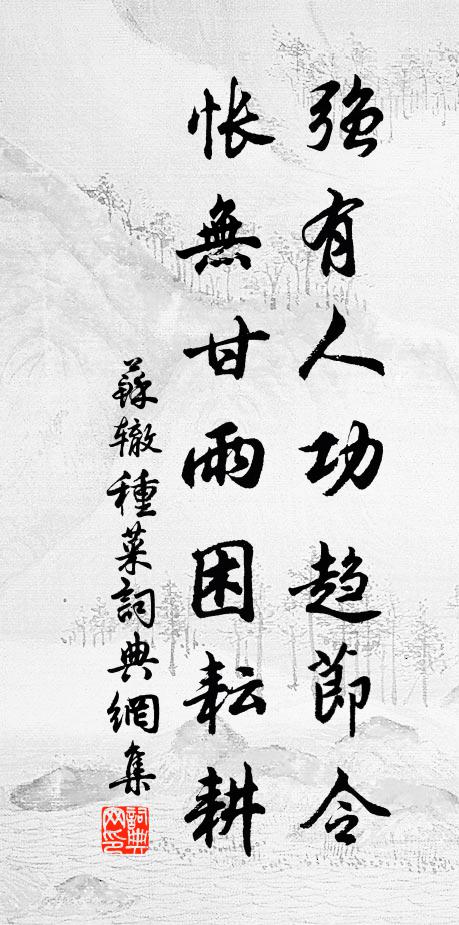 強有人功趨節令
悵無甘雨困耘耕
蘇辙種菜詞典網集
詞典网印